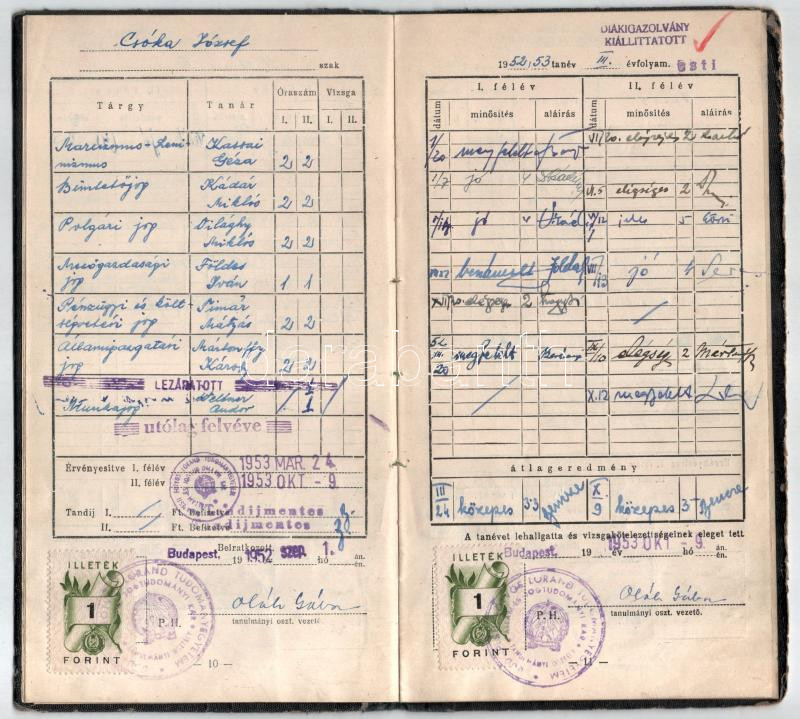 Csóka József
szak
Tárgy Tanár Óraszám Vizsga
I. II. I. II.
Marxizmus-Leni- Kassai
nizmus Géza 2 2
Büntetőjog Kádár
Miklós 2 2
Polgári jog Világhy
Miklós 2 2
Mezőgazdasági Földes
jog Iván 1 1
Pénzügyi és költ- Timár
ségvetési jog Mátyás 2 2
Államigazgatási Mártonffy
jog Károly 2 2
LEZÁRATOTT
Munkajog Weltner
Andor 1
utólag felvéve
Érvényesítve I. félév 1953 MÁR. 24.
II. félév 1953 OKT - 9.
Tandíj I. Ft. Befizetve díjmentes
II. Ft. Befizetve díjmentes
Beíratkozott
Budapest, 1952 szep. 1. án. én.
hó
ILLETÉK
1
FORINT
P. H.
Oláh Gábor
tanulmányi oszt. vezető
— 10 —
DIÁKIGAZOLVÁNY
KIÁLLITTATOTT
1952/53 tanév III. évfolyam. esti
I. félév II. félév
dátum minősítés aláírás dátum minősítés aláírás
1/20 megfelelt VI/20. elégséges 2
1/7 jó 4 VI.5 elégséges 2
jó 4 jeles 5
beszámolt Földes jó 4
XII/10. elégség. 2
52. III. 20 megfelelt IX/10 elégség 2 Mártonffy
X.12 megfelelt
átlageredmény
III/24 közepes 3·3 X/9 közepes 3
A tanévet lehallgatta és vizsgakötelezettségeinek eleget tett
Budapest, 19 év 1953 OKT - 9. hó án. én.
ILLETÉK
1
FORINT
P. H.
Oláh Gábor
tanulmányi oszt. vezető.
— 11 —
darabanth